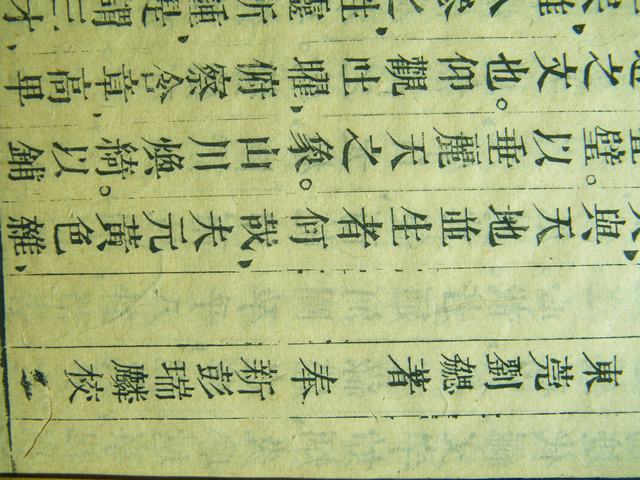 東莞劉勰著 奉新彭瑞麟校
矣、與天地並生者何哉、夫元黃色雜、
璧。以垂麗天之象。山川煥綺。以鋪
之文也。仰觀吐曜、俯察含章、高卑
惟人參之、性靈所鍾、是謂三才、